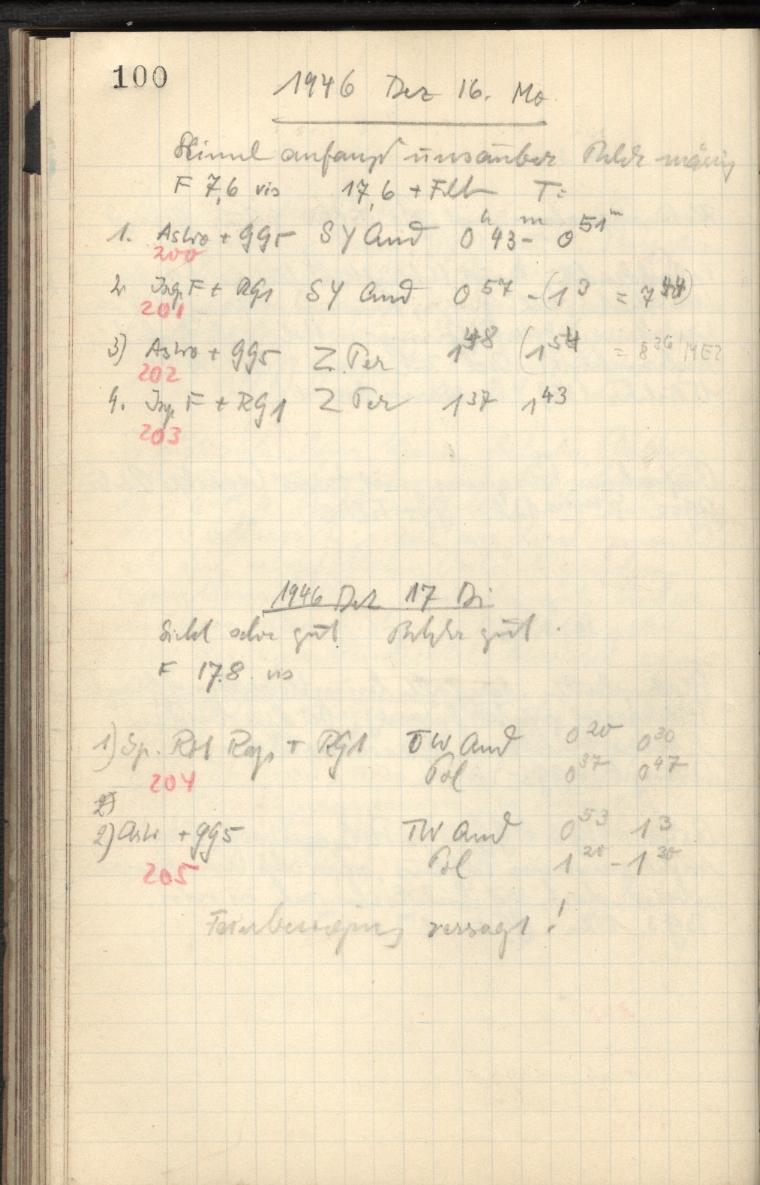 100
1946 Dez 16. Mo
Himmel anfangs unsauber Bilder mässig
F 7,6 vis 17,6 + Filt T=
1. Astro + GG5 SY And 0h 43m - 0 51m
200
2. F + RG1 SY And 0 57 - (1 3 = 7 44)
201
3) Astro + GG5 Z Per 1 48 (1 54 = 8 36 MEZ
202
4. F + RG1 Z Per 1 37 1 43
203
1946 Dez 17 Di
Sicht sehr gut Bilder gut.
F 17.8 vis
1) Sp. Rot + RG1 TW And 0 20 0 30
204 Pol 0 37 0 47
2)
2) Astr + GG5 TW And 0 53 1 3
205 Pol 1 20 - 1 30
Feinbewegung versagt!